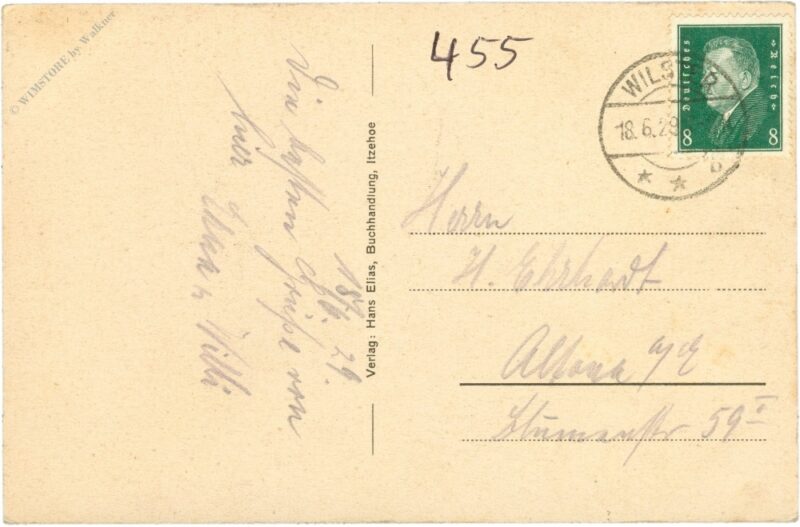 © WIMSTORE by Walkner
455
Deutsches Reich
8 8
WILSTER
18.6.29
b
18/6. 29.
Die besten Grüße von
Euer & Willi
Verlag: Hans Elias, Buchhandlung, Itzehoe
Herrn
H. Ehrhardt
Altona a/E
Blumenstr 59 I